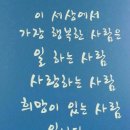 이 세상에서
가장 행복한 사람은
일 하는 사람
사랑하는 사람
희망이 있는 사람
입니다